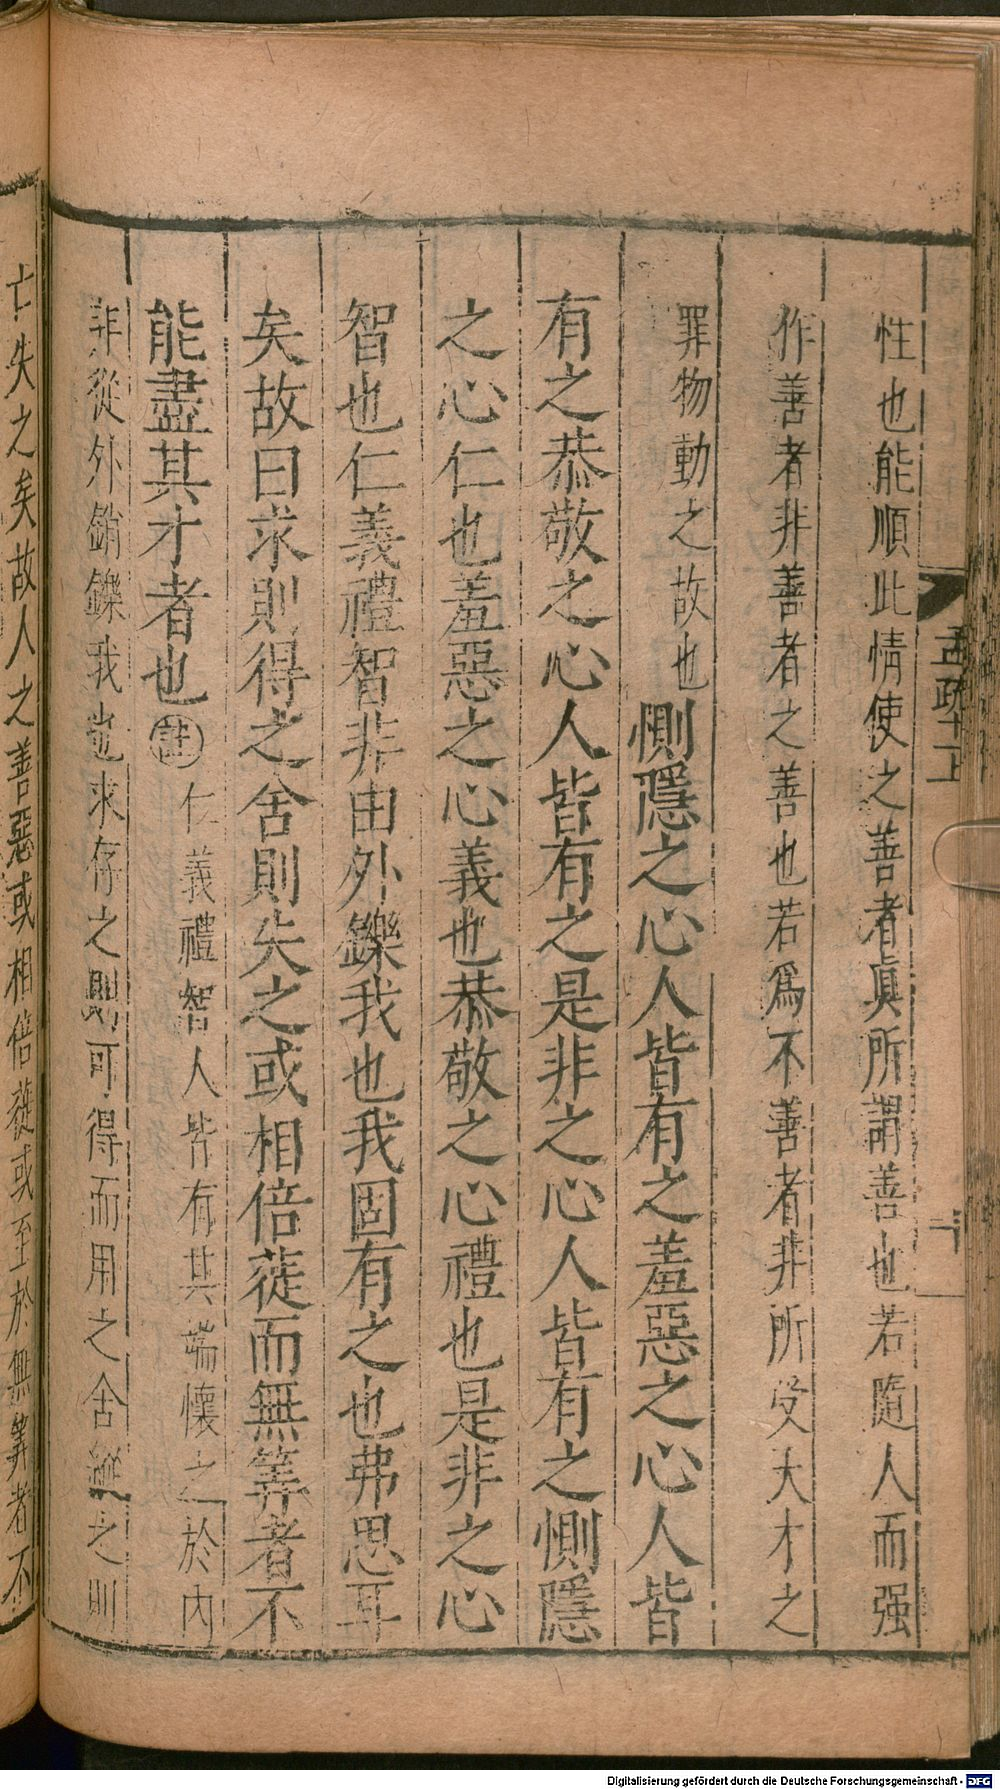 性也能順此情使之善者眞所謂善也若隨人而强
作善者非善者之善也若爲不善者非所受天才之
罪物動之故也惻隱之心人皆有之羞惡之心人皆
有之恭敬之心人皆有之是非之心人皆有之惻隱
之心仁也羞惡之心義也恭敬之心禮也是非之心
智也仁義禮智非由外鑠我也我固有之也弗思耳
矣故曰求則得之舍則失之或相倍蓰而無筭者不
能盡其才者也註仁義禮智人皆有其端懷之於內
非從外銷鑠我也求存之則可得而用之舍縱之則
亡失之矣故人之善惡或相倍蓰或至於無筭者不
Digitalisierung gefördert durch die Deutsche Forschungsgemeinschaft - DFG